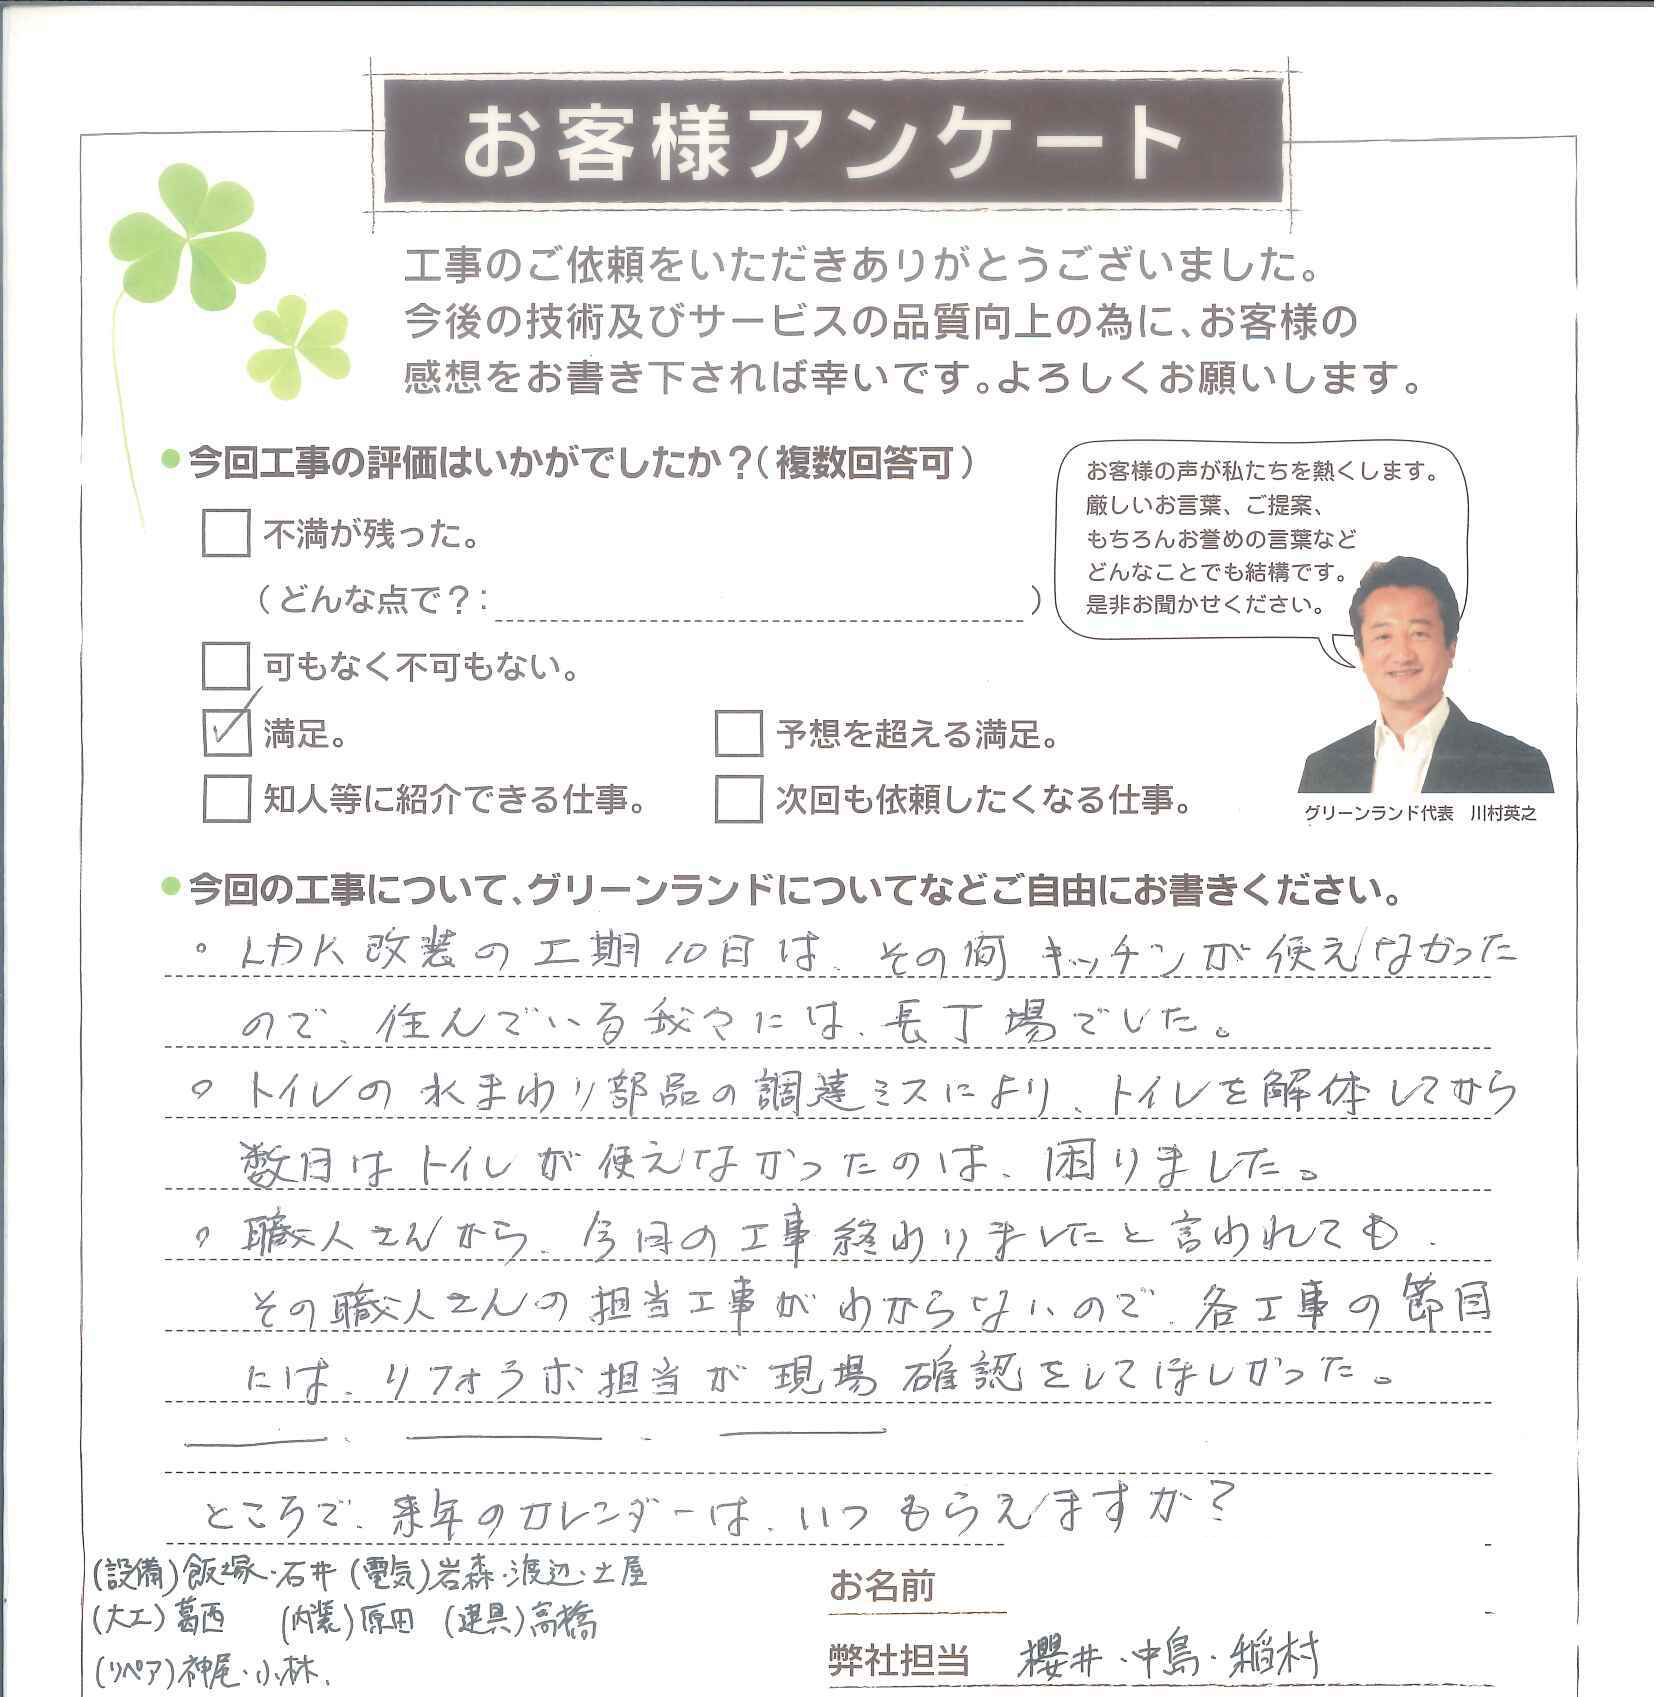 お客様アンケート
工事のご依頼をいただきありがとうございました。
今後の技術及びサービスの品質向上の為に、お客様の
感想をお書き下されば幸いです。よろしくお願いします。
●今回工事の評価はいかがでしたか？（複数回答可）
不満が残った。
（どんな点で？：　）
可もなく不可もない。
満足。
予想を超える満足。
知人等に紹介できる仕事。
次回も依頼したくなる仕事。
お客様の声が私たちを熱くします。
厳しいお言葉、ご提案、
もちろんお誉めの言葉など
どんなことでも結構です。
是非お聞かせください。
グリーンランド代表　川村英之
●今回の工事について、グリーンランドについてなどご自由にお書きください。
。LDK改装の工期10日は、その間キッチンが使えなかった
ので、住んでいる我々には、長丁場でした。
。トイレの水まわり部品の調達ミスにより、トイレを解体してから
数日はトイレが使えなかったのは、困りました。
。職人さんから、今日の工事終わりましたと言われても、
その職人さんの担当工事がわからないので、各工事の節目
には、リフォラボ担当が現場確認をしてほしかった。
ところで、来年のカレンダーは、いつもらえますか？
(設備)飯塚・石井 (電気)岩森・渡辺・土屋
(大工)葛西 (内装)原田 (建具)高橋
(リペア)神尾・小林.
お名前
弊社担当 櫻井・中島・稲村